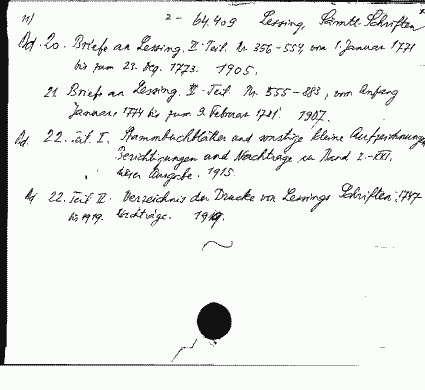 11) 2- 64.409 Lessing, Sämtl. Schriften
Bd. 20. Briefe an Lessing, II. Teil. Nr. 356-554, vom 1. Januar 1771
bis zum 23. Dez. 1773. 1905.
21 Briefe an Lessing. III. Teil. Nr. 555-883, vom Anfang
Januar 1774 bis zum 9. Februar 1781. 1907.
Bd. 22. Teil I. Stammbuchblätter und sonstige kleine Aufzeichnungen
Berichtigungen und Nachträge zu Band I.-XXI.
dieser Ausgabe. 1915.
Bd 22. Teil II. Verzeichnis der Drucke von Lessings Schriften. 1747
bis 1919. Nachträge. 1919.